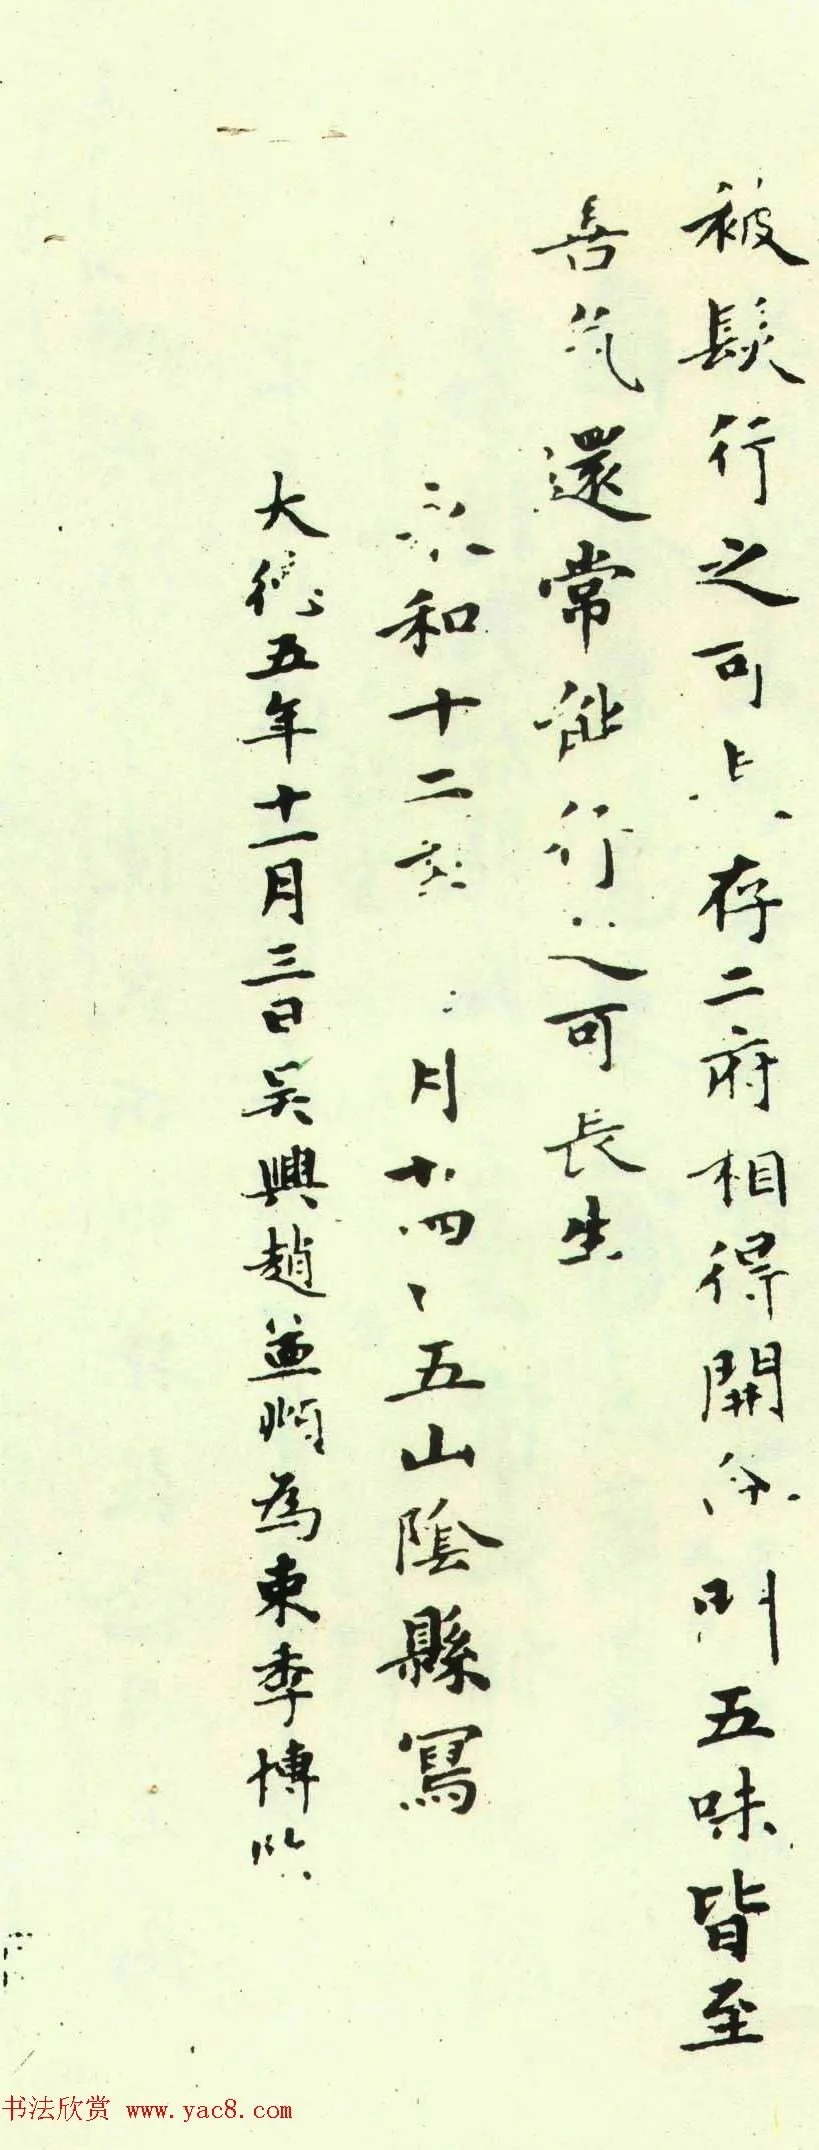 被髮行之可長存二府相得開命門五味皆至
善氣還常能行之可長生
永和十二年 月廿四、五山陰縣寫
大德五年十一月三日吳興趙孟頫為束季博臨
书法欣赏 www.yac8.com